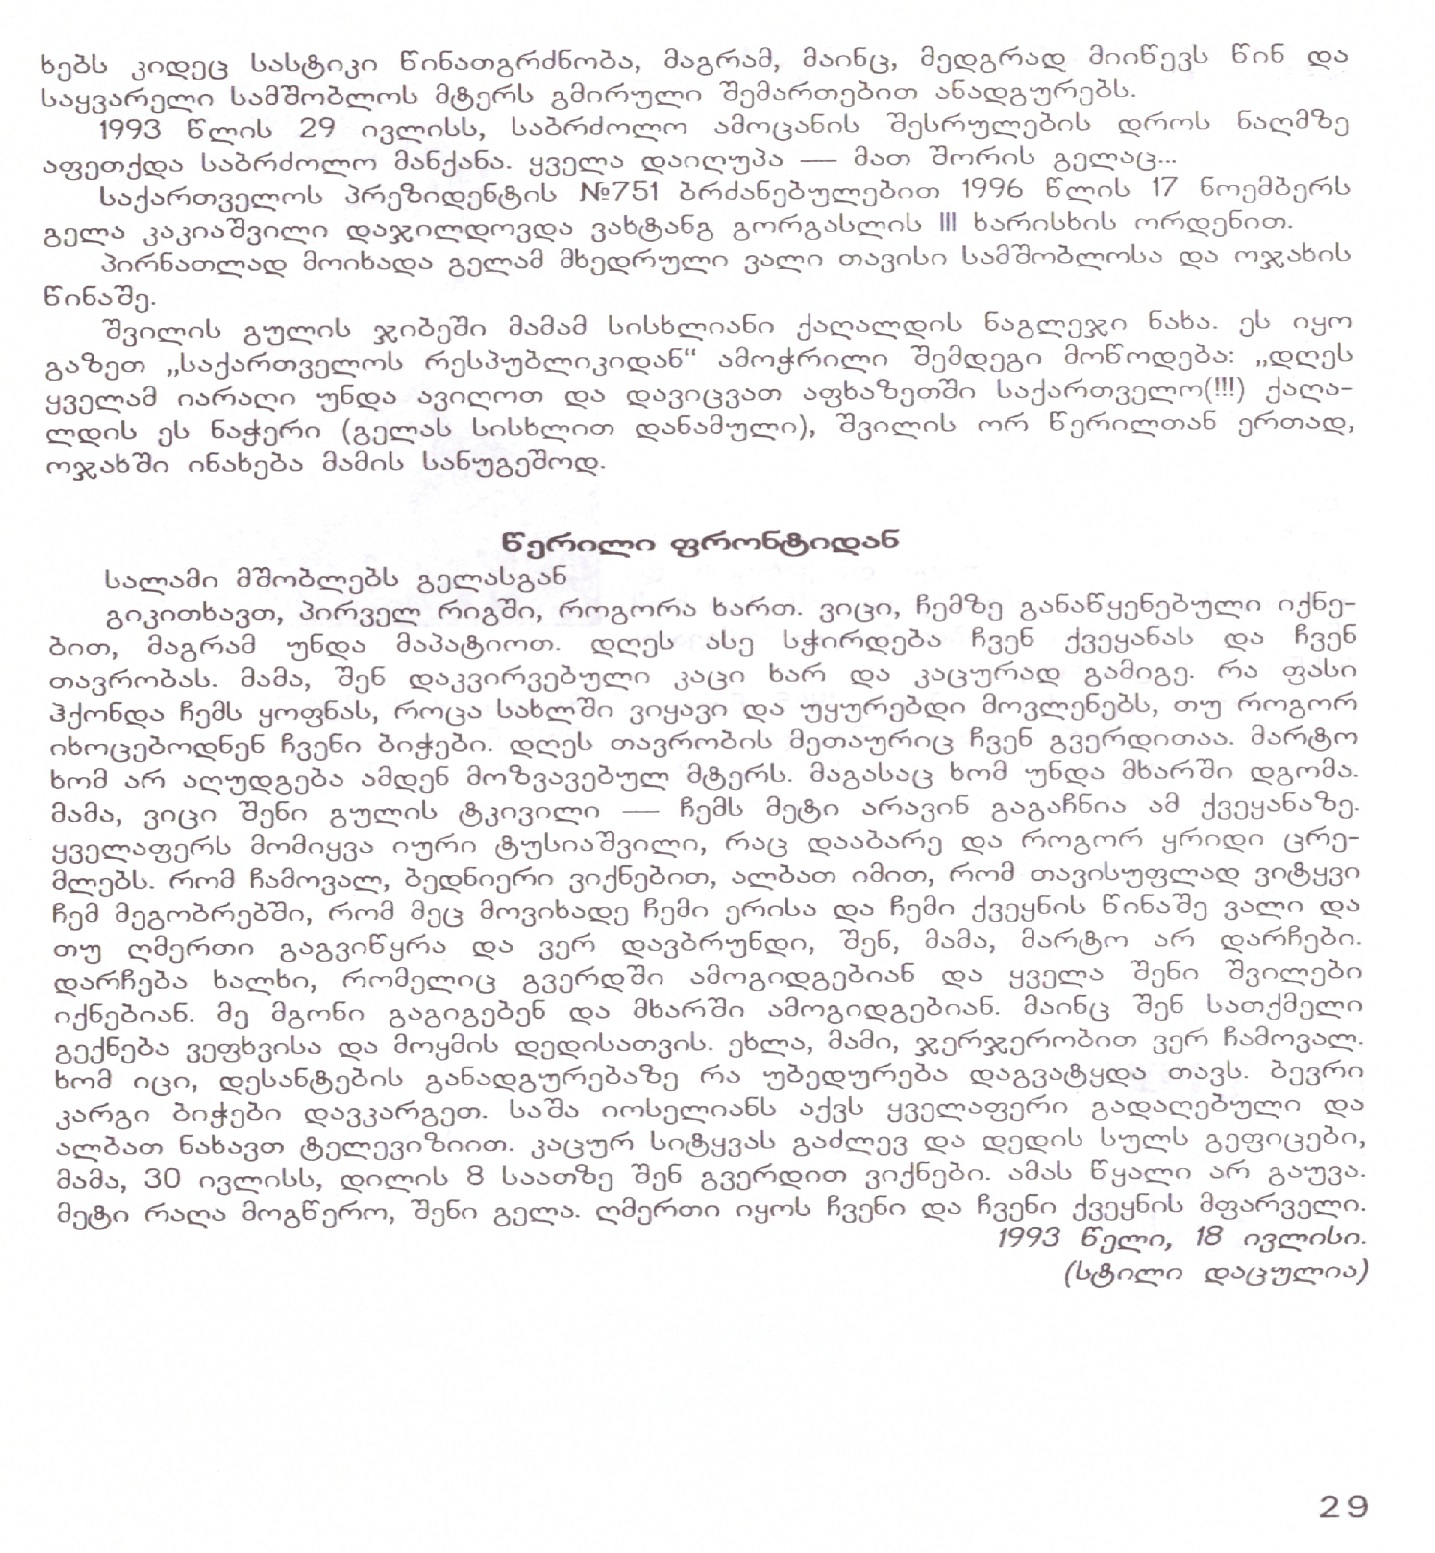 ხებს კიდეც სასტიკი წინათგრძნობა, მაგრამ, მაინც, მედგრად მიიწევს წინ და
საყვარელი სამშობლოს მტერს გმირული შემართებით ანადგურებს.
1993 წლის 29 ივლისს, საბრძოლო ამოცანის შესრულების დროს ნაღმზე
აფეთქდა საბრძოლო მანქანა. ყველა დაიღუპა — მათ შორის გელაც...
საქართველოს პრეზიდენტის №751 ბრძანებულებით 1996 წლის 17 ნოემბერს
გელა კაკიაშვილი დაჯილდოვდა ვახტანგ გორგასლის III ხარისხის ორდენით.
პირნათლად მოიხადა გელამ მხედრული ვალი თავისი სამშობლოსა და ოჯახის
წინაშე.
შვილის გულის ჯიბეში მამამ სისხლიანი ქაღალდის ნაგლეჯი ნახა. ეს იყო
გაზეთ „საქართველოს რესპუბლიკიდან“ ამოჭრილი შემდეგი მოწოდება: „დღეს
ყველამ იარაღი უნდა ავიღოთ და დავიცვათ აფხაზეთში საქართველო(!!!) ქაღა-
ლდის ეს ნაჭერი (გელას სისხლით დანამული), შვილის ორ წერილთან ერთად,
ოჯახში ინახება მამის სანუგეშოდ.
წერილი ფრონტიდან
სალამი მშობლებს გელასგან
გიკითხავთ, პირველ რიგში, როგორა ხართ. ვიცი, ჩემზე განაწყენებული იქნე-
ბით, მაგრამ უნდა მაპატიოთ. დღეს ასე სჭირდება ჩვენ ქვეყანას და ჩვენ
თავრობას. მამა, შენ დაკვირვებული კაცი ხარ და კაცურად გამიგე. რა ფასი
ჰქონდა ჩემს ყოფნას, როცა სახლში ვიყავი და უყურებდი მოვლენებს, თუ როგორ
იხოცებოდნენ ჩვენი ბიჭები. დღეს თავრობის მეთაურიც ჩვენ გვერდითაა. მარტო
ხომ არ აღუდგება ამდენ მოზვავებულ მტერს. მაგასაც ხომ უნდა მხარში დგომა.
მამა, ვიცი შენი გულის ტკივილი — ჩემს მეტი არავინ გაგაჩნია ამ ქვეყანაზე.
ყველაფერს მომიყვა იური ტუსიაშვილი, რაც დააბარე და როგორ ყრიდი ცრე-
მლებს. რომ ჩამოვალ, ბედნიერი ვიქნებით, ალბათ იმით, რომ თავისუფლად ვიტყვი
ჩემ მეგობრებში, რომ მეც მოვიხადე ჩემი ერისა და ჩემი ქვეყნის წინაშე ვალი და
თუ ღმერთი გაგვიწყრა და ვერ დავბრუნდი, შენ, მამა, მარტო არ დარჩები.
დარჩება ხალხი, რომელიც გვერდში ამოგიდგებიან და ყველა შენი შვილები
იქნებიან. მე მგონი გაგიგებენ და მხარში ამოგიდგებიან. მაინც შენ სათქმელი
გექნება ვეფხვისა და მოყმის დედისათვის. ეხლა, მამი, ჯერჯერობით ვერ ჩამოვალ.
ხომ იცი, დესანტების განადგურებაზე რა უბედურება დაგვატყდა თავს. ბევრი
კარგი ბიჭები დავკარგეთ. საშა იოსელიანს აქვს ყველაფერი გადაღებული და
ალბათ ნახავთ ტელევიზიით. კაცურ სიტყვას გაძლევ და დედის სულს გეფიცები,
მამა, 30 ივლისს, დილის 8 საათზე შენ გვერდით ვიქნები. ამას წყალი არ გაუვა.
მეტი რაღა მოგწერო, შენი გელა. ღმერთი იყოს ჩვენი და ჩვენი ქვეყნის მფარველი.
1993 წელი, 18 ივლისი.
(სტილი დაცულია)
29